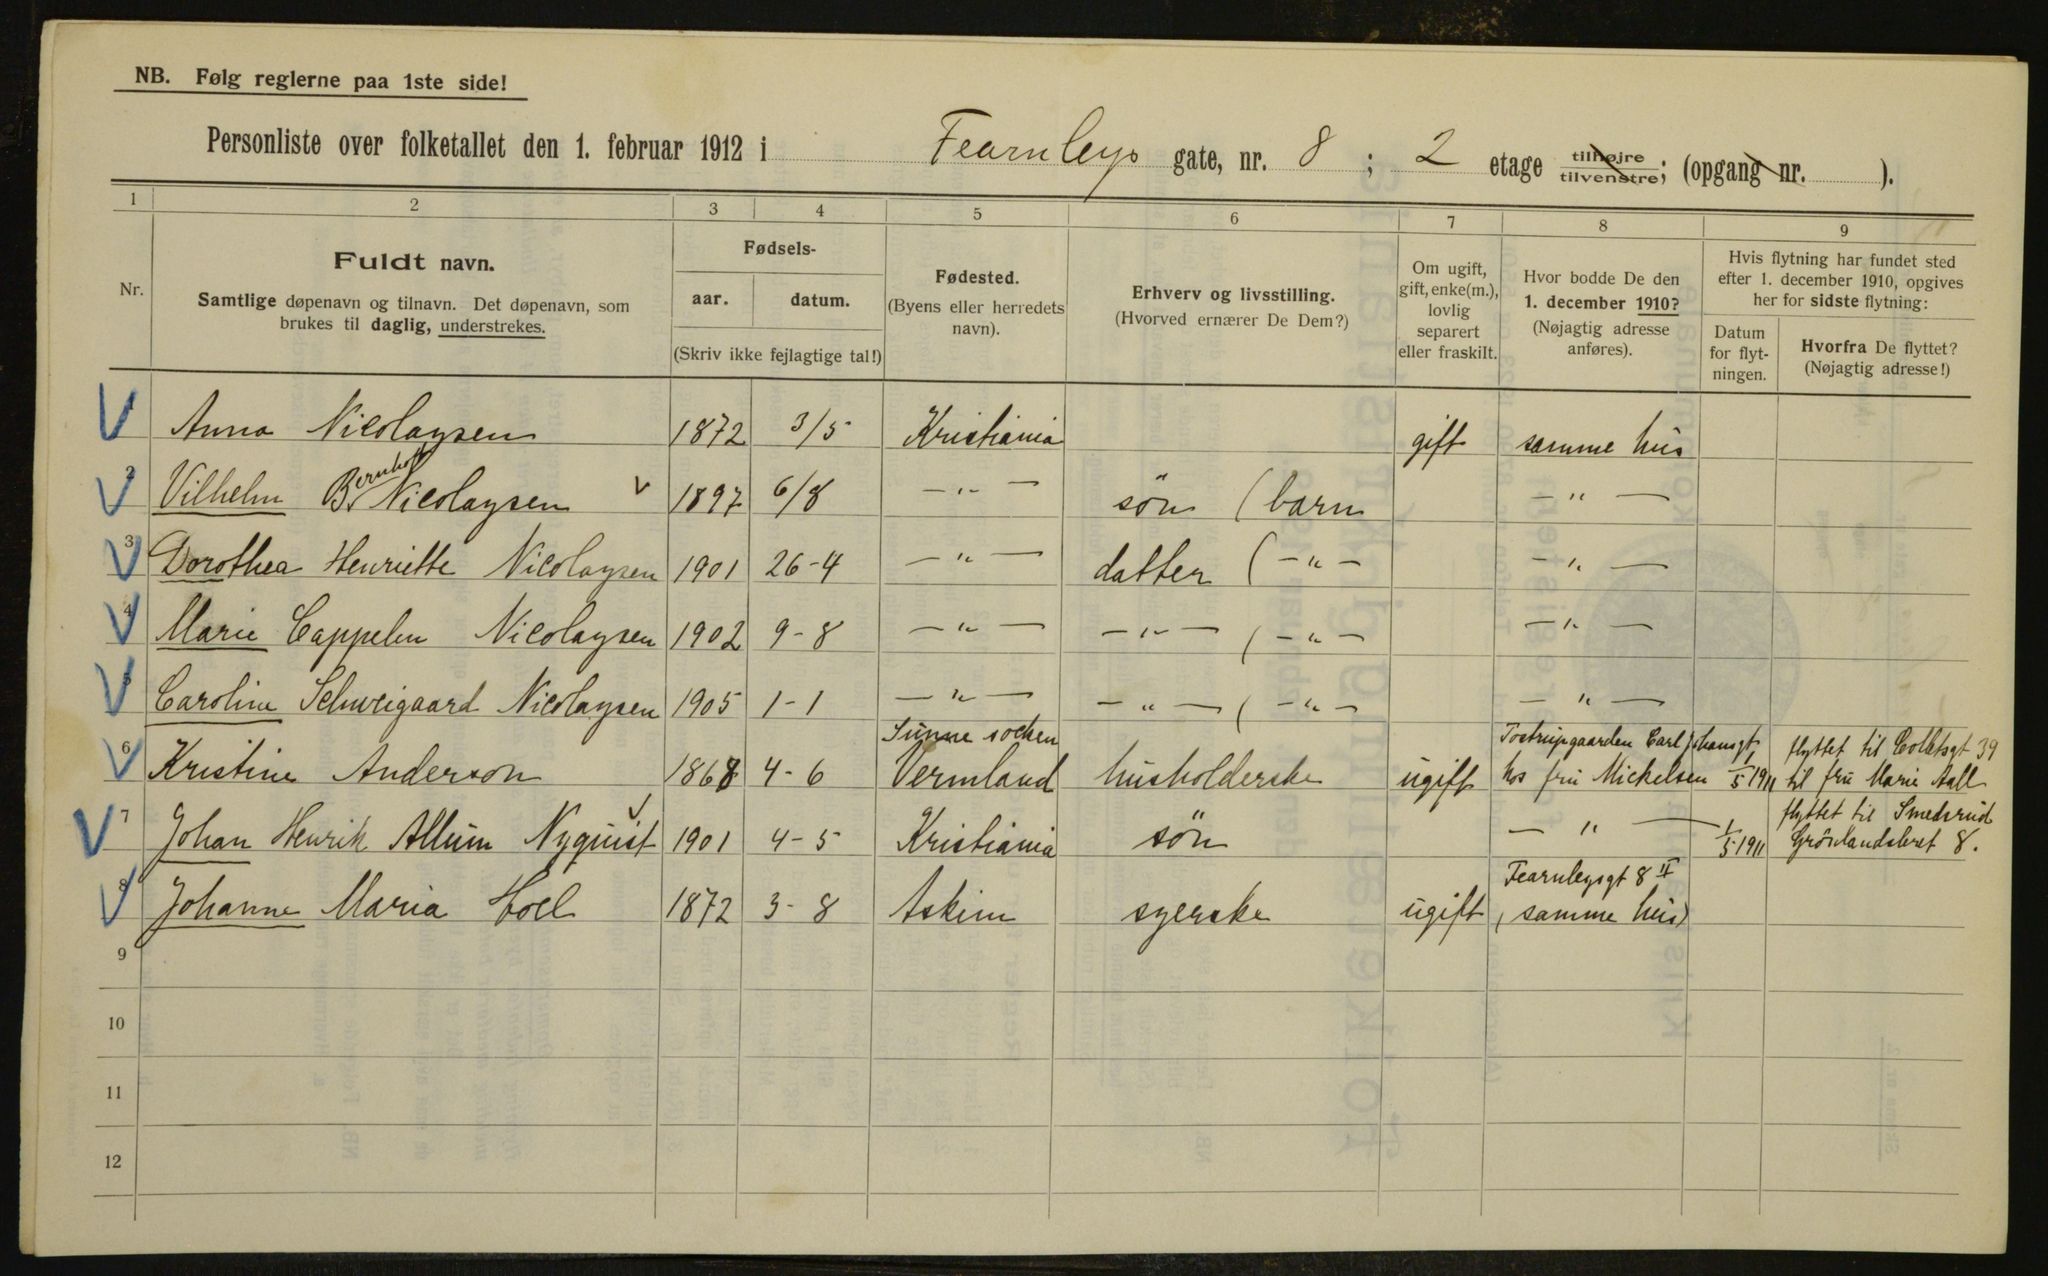 NB. Følg reglerne paa 1ste side!
Personliste over folketallet den 1. februar 1912 i Fearnleys gate, nr. 8 ; 2 etage tilhøjre tilvenstre; (opgang nr. ).
1 2 3 4 5 6 7 8 9
Nr.
Fuldt navn.
Samtlige døpenavn og tilnavn. Det døpenavn, som
brukes til daglig, understrekes.
Fødsels-
aar. datum.
(Skriv ikke fejlagtige tal!)
Fødested.
(Byens eller herredets
navn).
Erhverv og livsstilling.
(Hvorved ernærer De Dem?)
Om ugift,
gift, enke(m.),
lovlig
separert
eller fraskilt.
Hvor bodde De den
1. december 1910?
(Nøjagtig adresse
anføres).
Hvis flytning har fundet sted
efter 1. december 1910, opgives
her for sidste flytning:
Datum
for flyt-
ningen.
Hvorfra De flyttet?
(Nøjagtig adresse!)
1 Anna Nicolaysen 1872 3/5 Kristiania gift samme hus
2 Vilhelm Bernhoft Nicolaysen 1897 6/8 — " — sön ( barn — " —
3 Dorothea Henriette Nicolaysen 1901 26-4 — " — datter ( - " - — " —
4 Marie Cappelen Nicolaysen 1902 9-8 — " — — " — ( - " - — " —
5 Caroline Schweigaard Nicolaysen 1905 1-1 — " — — " — ( - " - — " —
Sunne socken Tostrupgaarden Carl Johansgt flyttet til Coletsgt 39
6 Kristine Anderson 1868 4-6 Vermland husholderske ugift hos fru Mickelsen 1/5 1911 til fru Marie Aall
flyttet til Smedsrud
7 Johan Henrik Allum Nyquist 1901 4-5 Kristiania sön — " — 1/5 1911 Grönlandsleret 8.
Fearnleysgt 8 II
8 Johanne Maria Hoel 1872 3-8 Askim syerske ugift (samme hus)
9
10
11
12